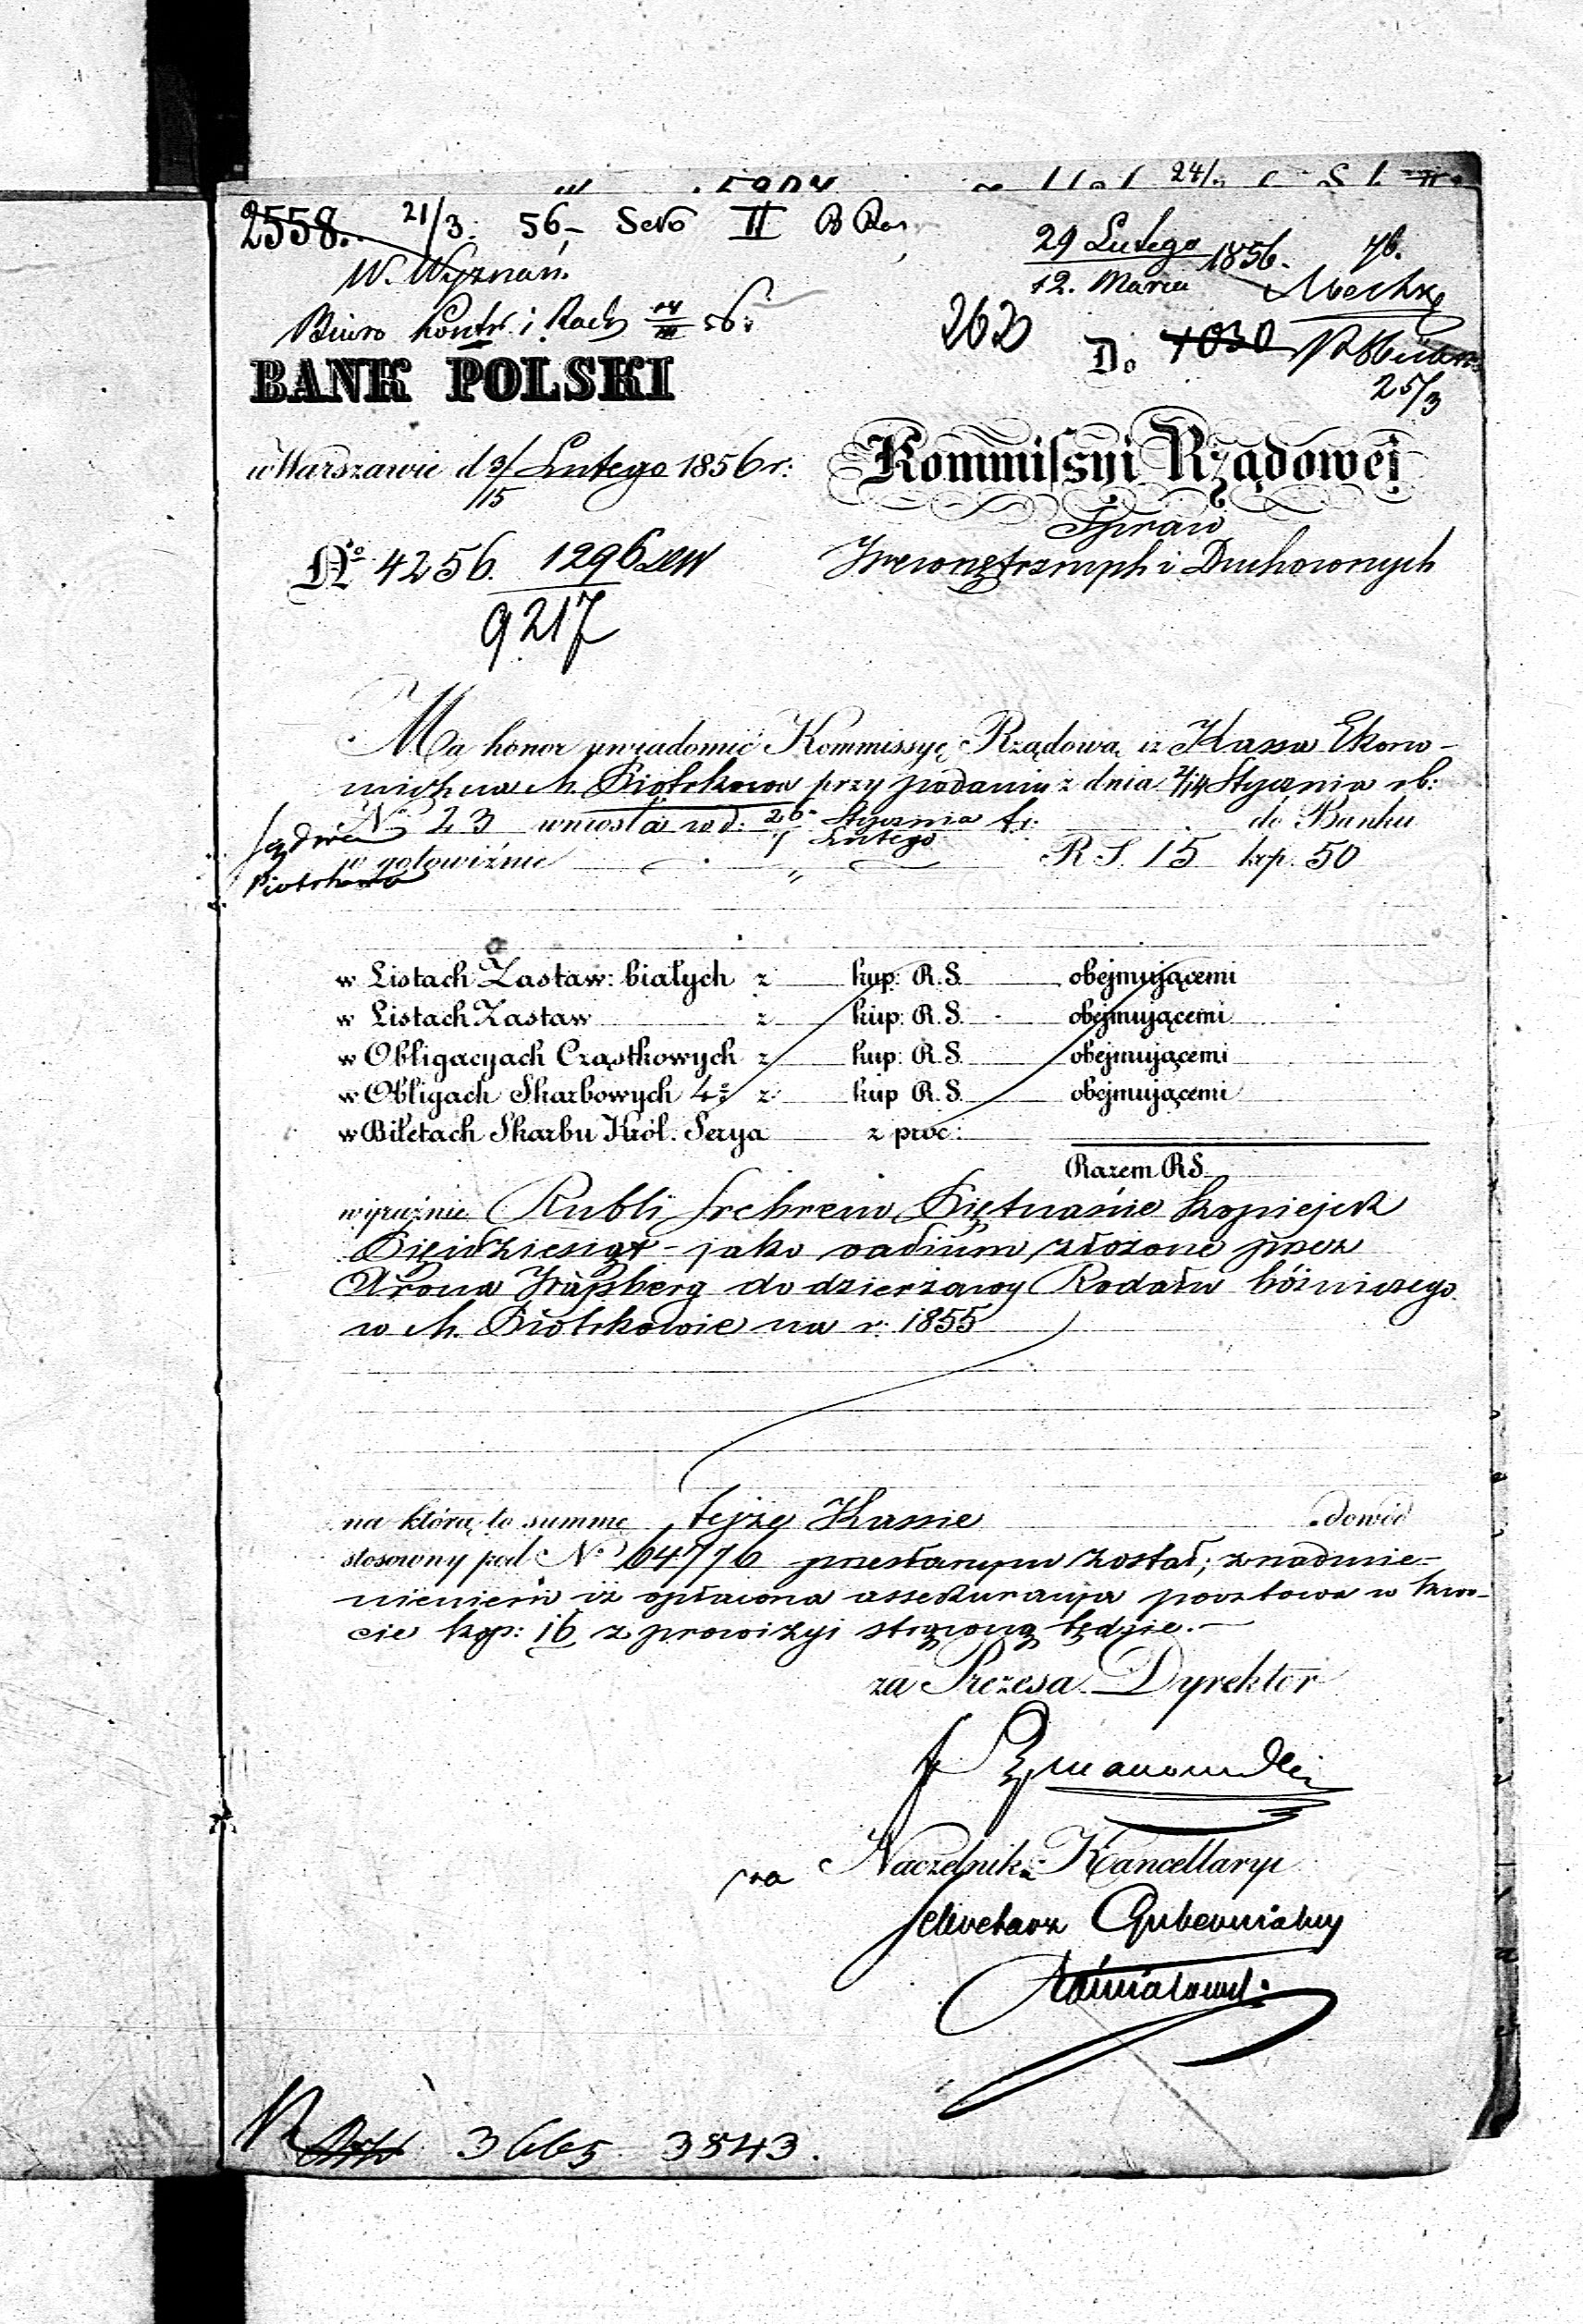 2558. 21/3. 56. II
W. Wyznań.
Biuro Kontr. i Rach
29 Lutego 1856.
12. Marca
262
Do 1030
25/3
BANK POLSKI
w Warszawie d 3/15 Lutego 1856 r:
Kommissyi Rządowej
Spraw
Wewnętrznych i Duchownych
No 4256. 1296
9217
Ma honor uwiadomić Kommissyę Rządową iż Kassa Ekono-
miczna M. Piotrkowa przy podaniu z dnia 2/14 Stycznia rb:
No 23 wniosła wd: 26 Stycznia t.r: do Banku
7 Lutego
w gotowiźnie R S. 15 kop. 50
Piotrkowa
w Listach Zastaw: białych z kup: R. S. obejmującemi
w Listach Zastaw z kup: R. S. obejmującemi
w Obligacyach Cząstkowych z kup: R. S. obejmującemi
w Obligach Skarbowych 4 z kup R. S. obejmującemi
w Biletach Skarbu Król. Serya z proc:
Razem RS.
wyraźnie Rubli Srebrem Piętnaście kopiejek
Pięćdziesiąt - jako vadium złożone przez
Arona do dzierżawy Rodału bóżniczego
w M. Piotrkowie na r. 1855
na którą to summę tejże Kassie dowód
stosowny pod No 64776 przesłanym został; z nadmie-
nieniem iż opłacona assekuracya pocztowa w kwo-
cie kop: 16 z prowizyi strąconą będzie.
za Prezesa Dyrektor
za Naczelnik Kancellaryi
Sekretarz Gubernialny
3665 3843.